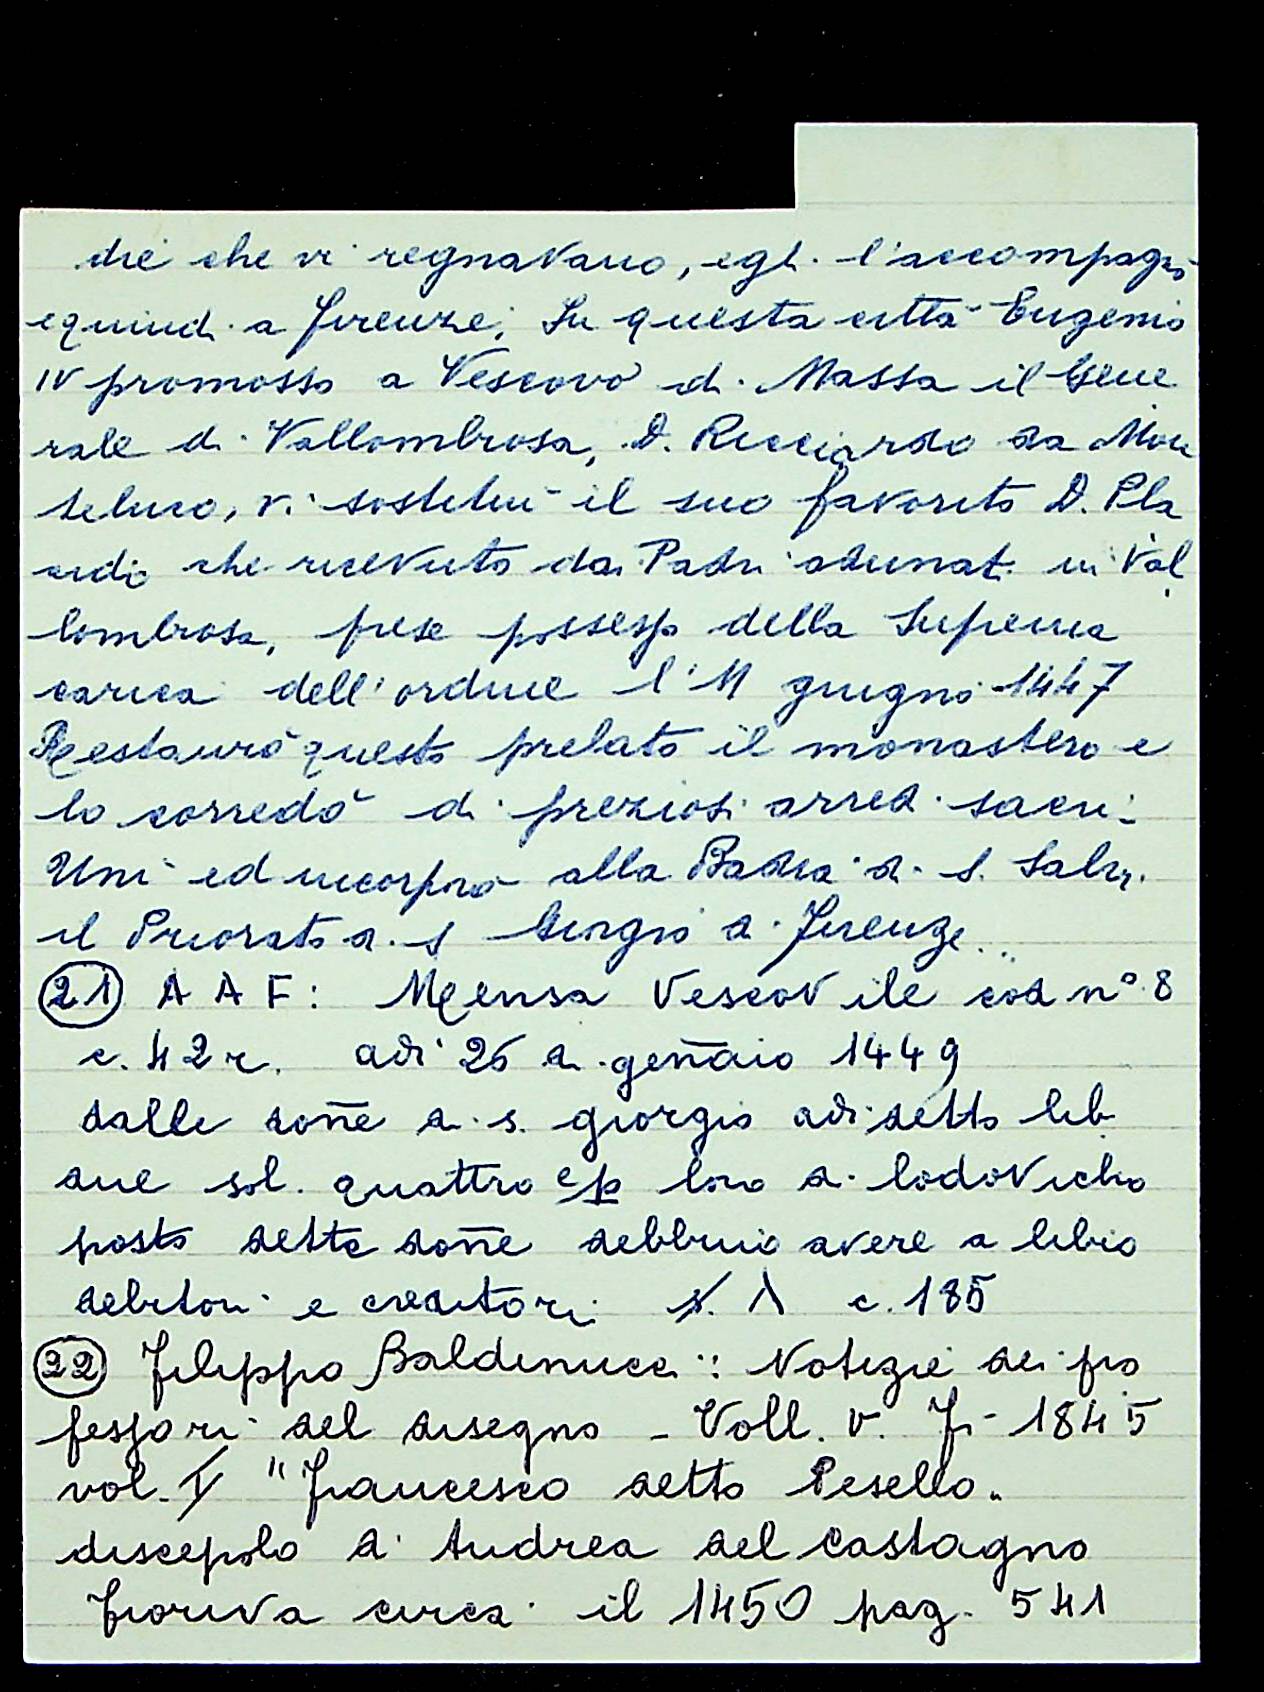 die che vi regnavano, egli l'accompagnò
e quindi a Firenze; In questa città Eugenio
IV promosso a Vescovo di Massa il Gene
rale di Vallombrosa, D. Ricciardo da Mon
teluco, vi sostituì il suo favorito D. Pla
cido che ricevuto dai Padri adunati in Val
lombrosa, prese possesso della Suprema
carica dell'ordine l'11 giugno 1447
Restaurò questo prelato il monastero e
lo corredò di preziosi arredi sacri.
Unì ed incorporò alla Badia di S. Salvi
il Priorato di S Giorgio a Firenze...
(21) A A F: Mensa Vescovile cod n° 8
c. 42 r. adì 26 di gennaio 1449
dalle donne di s. giorgio adi detto lib
due sol. quattro e p loro a lodovicho
posto dette donne debbino avere a libro
debitori e creditori s. A c. 185
(22) Filippo Baldinucci: Notizie dei pro
fessori del disegno - Voll. V. Fi - 1845
vol. V "Francesco detto Pesello.
discepolo di Andrea del Castagno
fioriva circa il 1450 pag. 541